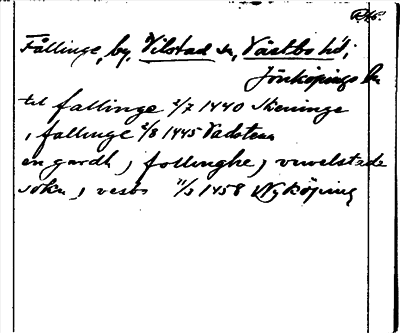 Fållinge, by, Vilstad sn, Västbo hd;
Jönköpings ln
til fallinge 2/7 1440 Skeninge
i fallinge 2/8 1445 Vadstena
en gardh j follinghe j viuelstade
sokn j vesbo 11/3 1458 Nyköping